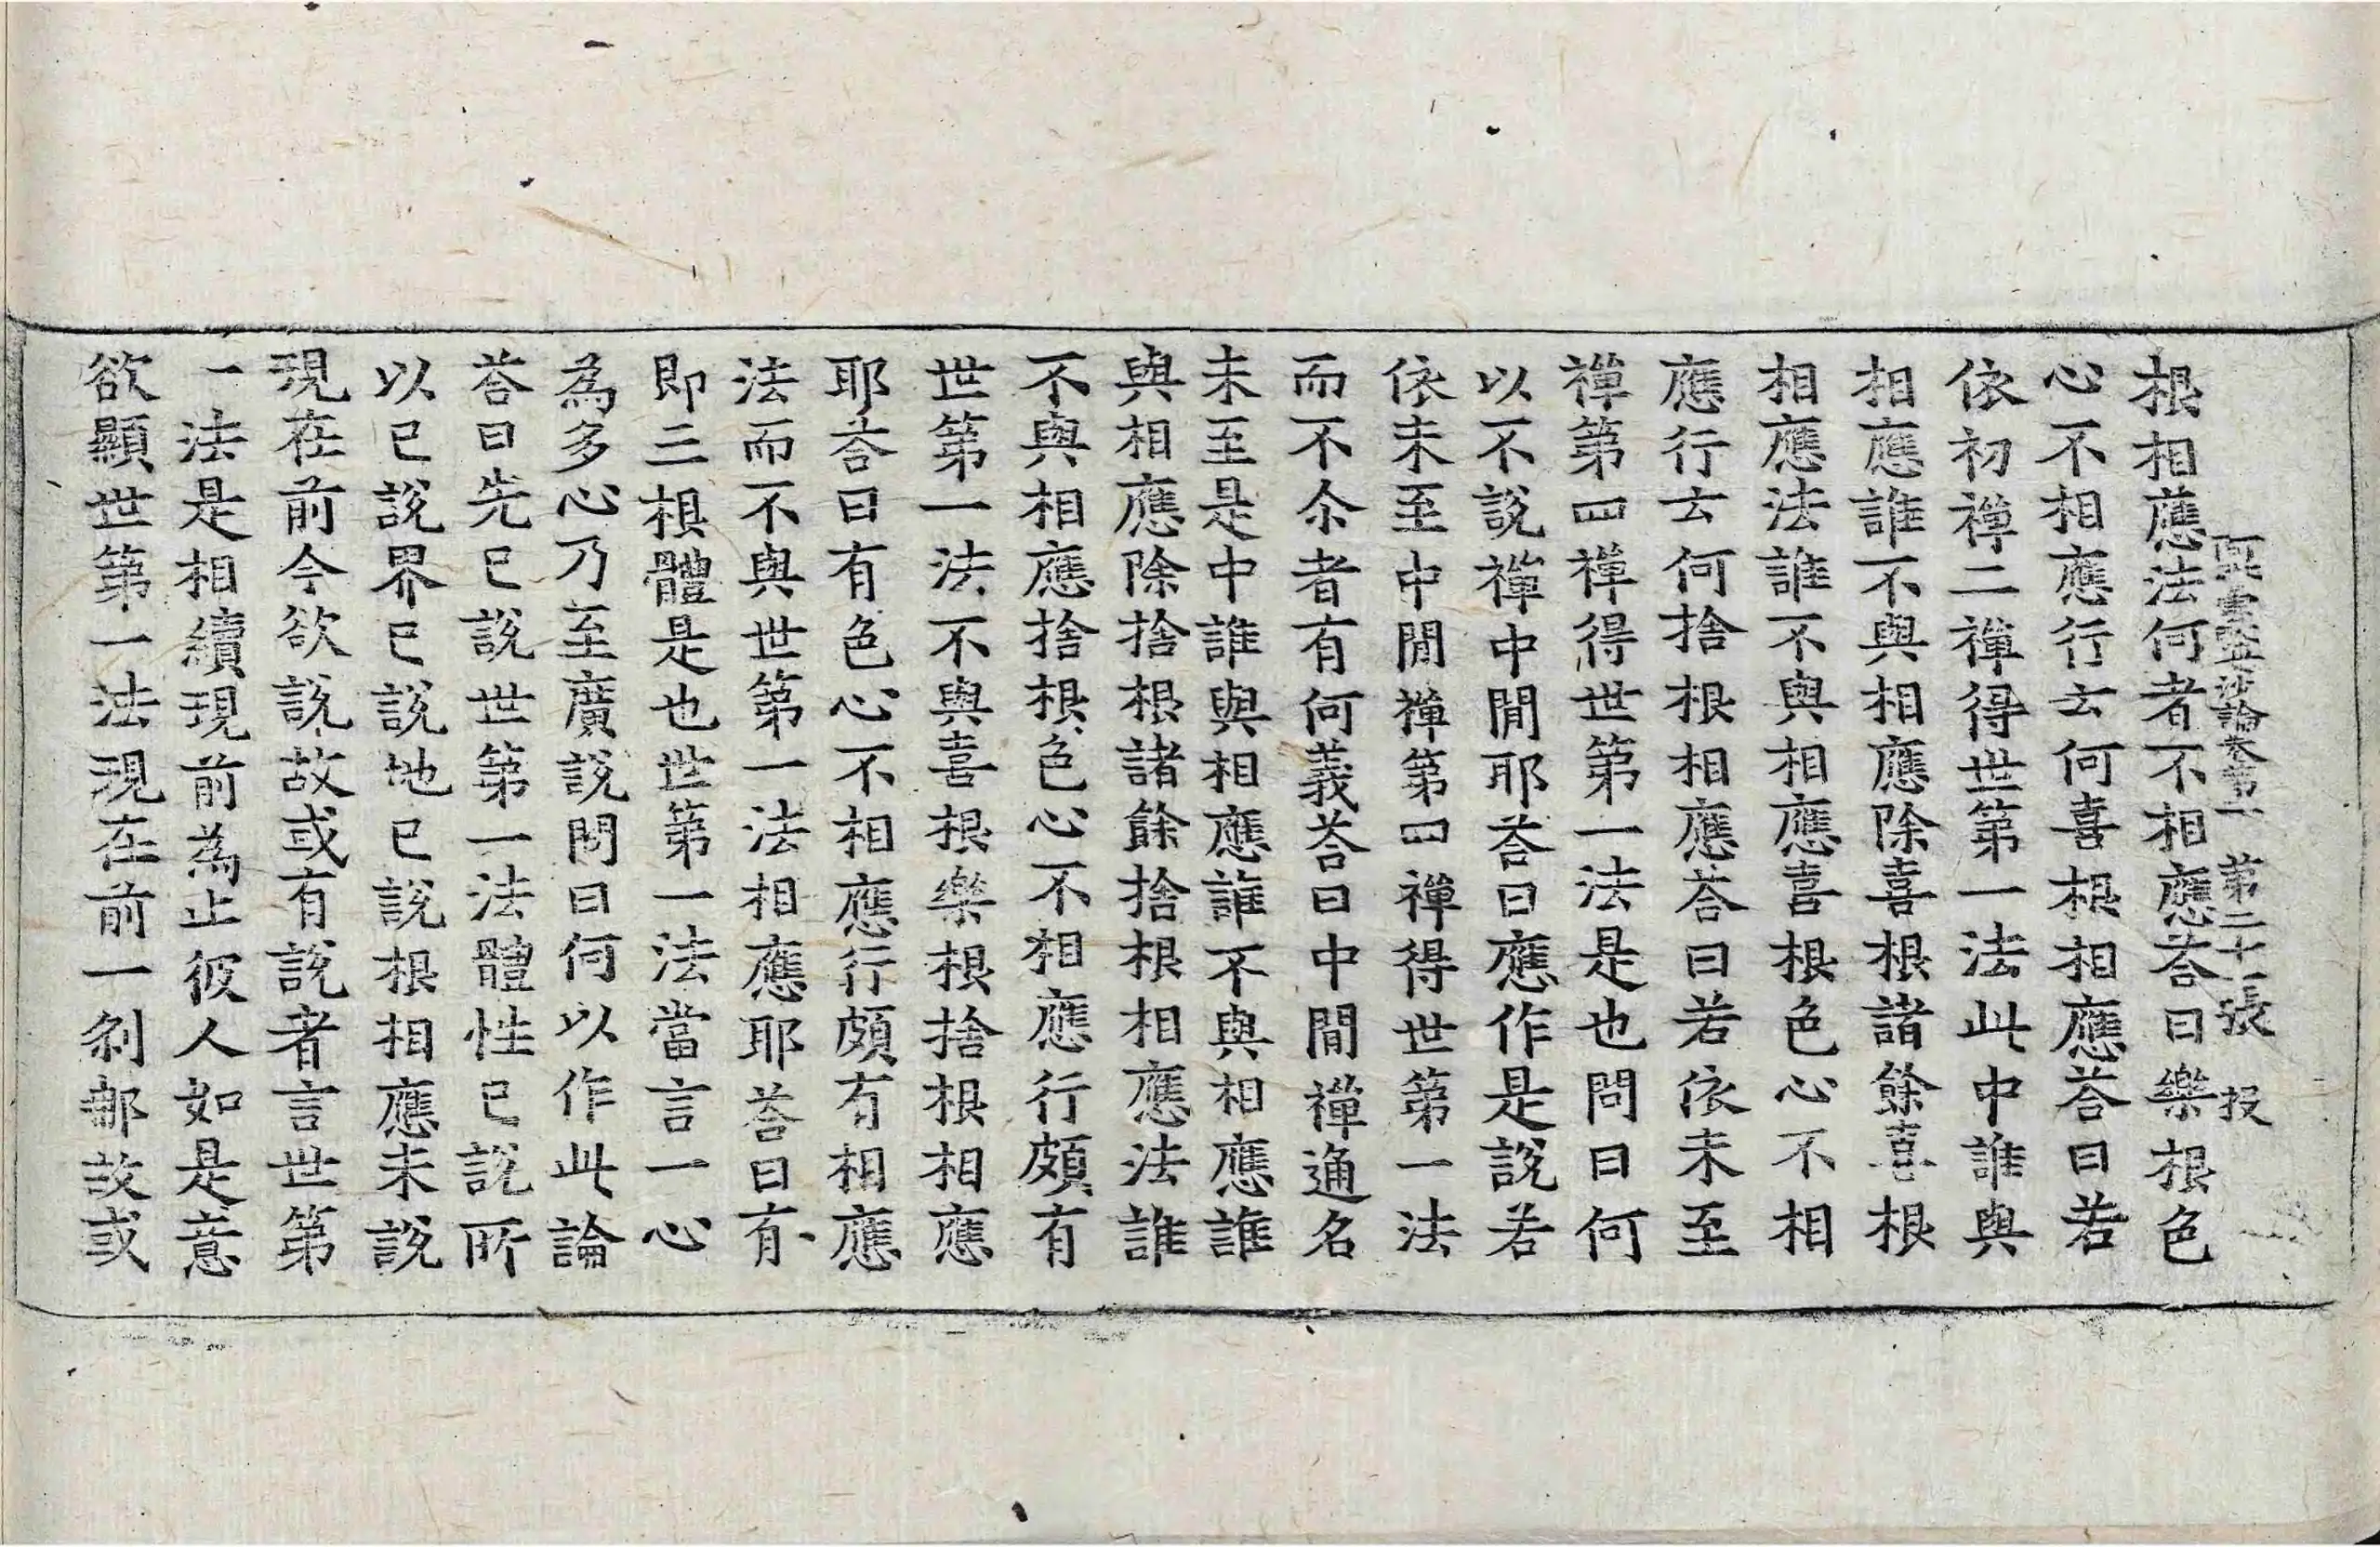 阿毗曇毗婆沙論卷第二 第二十張 投
根相應法何者不相應荅曰樂根色
心不相應行去何喜根相應荅曰若
依初禪二禪得世第一法此中誰與
相應誰不與相應除喜根諸餘喜根
相應法誰不與相應喜根色心不相
應行去何捨根相應荅曰若依未至
禪第四禪得世第一法是也問曰何
以不說禪中閒耶荅曰應作是說若
依未至中閒禪第四禪得世第一法
而不尒者有何義荅曰中閒禪通名
未至是中誰與相應誰不與相應誰
與相應除捨根諸餘捨根相應法誰
不與相應捨根色心不相應行頗有
世第一法不與喜根樂根捨根相應
耶荅曰有色心不相應行頗有相應
法而不與世第一法相應耶荅曰有
即三根體是也世第一法當言一心
為多心乃至廣說問曰何以作此論
荅曰先已說世第一法體性已說所
以已說界已說地已說根相應未說
現在前今欲說故或有說者言世第
一法是相續現前為止彼人如是意
欲顯世第一法現在前一剎那故或